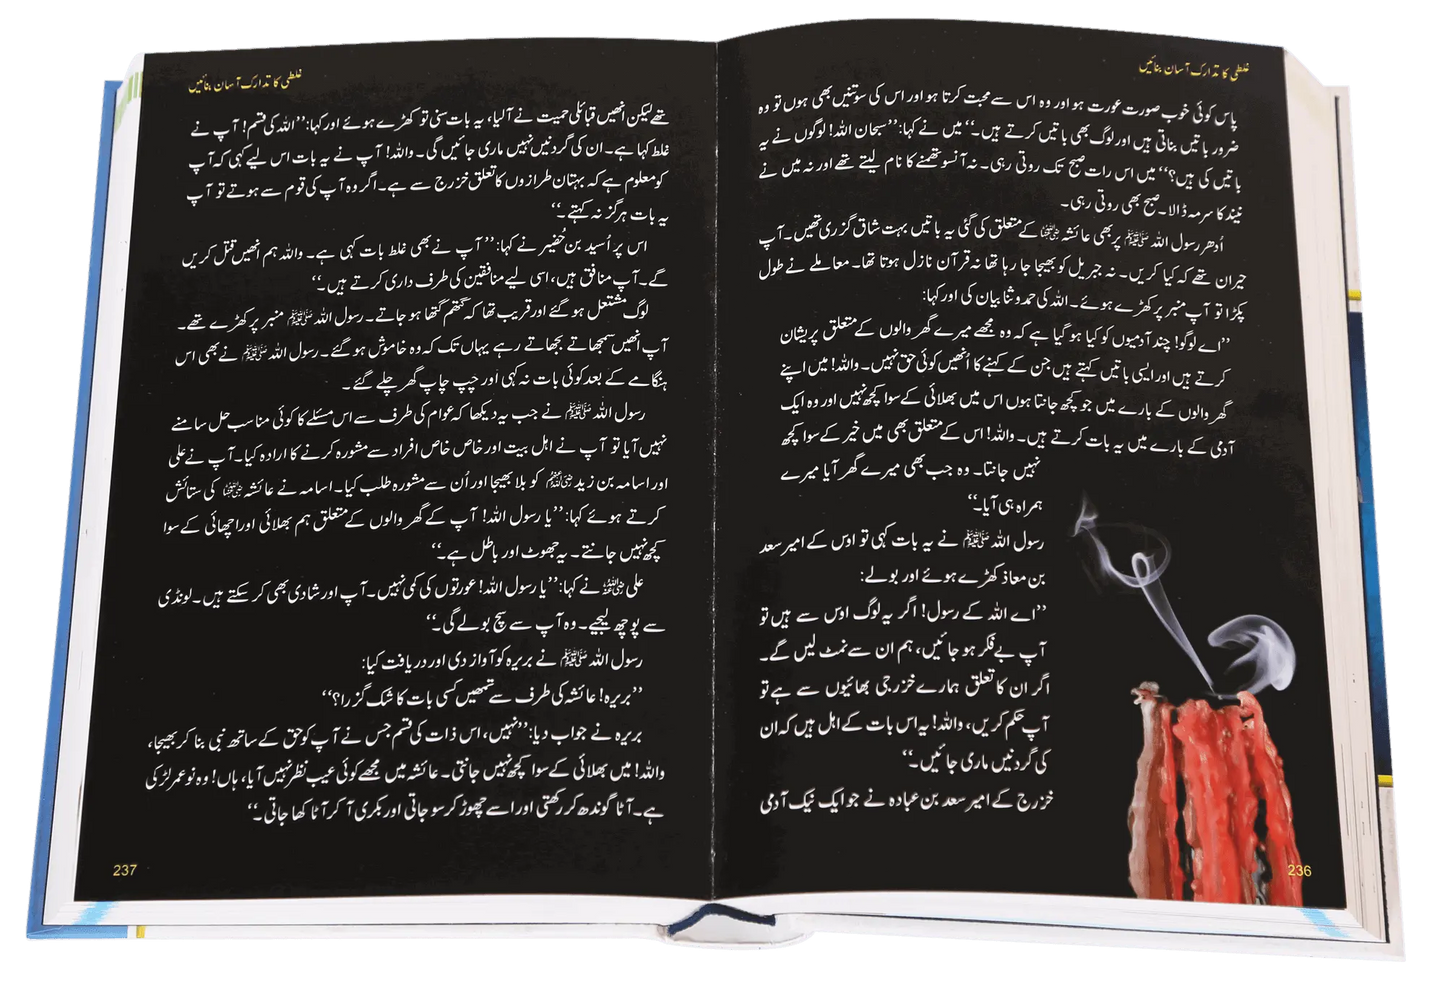 غلطی کا تدارک آسان بنائیں
پاس کوئی خوب صورت عورت ہو اور وہ اس سے محبت کرتا ہو اور اس کی سوتنیں بھی ہوں تو وہ
ضرور باتیں بناتی ہیں اور لوگ بھی باتیں کرتے ہیں۔‘‘ میں نے کہا: ’’سبحان اللہ! لوگوں نے یہ
باتیں کی ہیں؟‘‘ میں اس رات صبح تک روتی رہی۔ نہ آنسو تھمنے کا نام لیتے تھے اور نہ میں نے
نیند کا سرمہ ڈالا۔ صبح بھی روتی رہی۔
اُدھر رسول اللہ ﷺ پر بھی عائشہ رضی اللہ عنہا کے متعلق کی گئی یہ باتیں بہت شاق گزری تھیں۔ آپ
حیران تھے کہ کیا کریں۔ نہ جبریل کو بھیجا جا رہا تھا نہ قرآن نازل ہوتا تھا۔ معاملے نے طول
پکڑا تو آپ منبر پر کھڑے ہوئے۔ اللہ کی حمد و ثنا بیان کی اور کہا:
’’اے لوگو! چند آدمیوں کو کیا ہو گیا ہے کہ وہ مجھے میرے گھر والوں کے متعلق پریشان
کرتے ہیں اور ایسی باتیں کہتے ہیں جن کے کہنے کا اُنھیں کوئی حق نہیں۔ واللہ! میں اپنے
گھر والوں کے بارے میں جو کچھ جانتا ہوں اس میں بھلائی کے سوا کچھ نہیں اور وہ ایک
آدمی کے بارے میں یہ بات کرتے ہیں۔ واللہ! اس کے متعلق بھی میں خیر کے سوا کچھ
نہیں جانتا۔ وہ جب بھی میرے گھر آیا میرے
ہمراہ ہی آیا۔‘‘
رسول اللہ ﷺ نے یہ بات کہی تو اوس کے امیر سعد
بن معاذ کھڑے ہوئے اور بولے:
’’اے اللہ کے رسول! اگر یہ لوگ اوس سے ہیں تو
آپ بے فکر ہو جائیں، ہم ان سے نمٹ لیں گے۔
اگر ان کا تعلق ہمارے خزرجی بھائیوں سے ہے تو
آپ حکم کریں، واللہ! یہ اس بات کے اہل ہیں کہ ان
کی گردنیں ماری جائیں۔‘‘
خزرج کے امیر سعد بن عبادہ نے جو ایک نیک آدمی
236
غلطی کا تدارک آسان بنائیں
تھے لیکن انھیں قبائلی حمیت نے آلیا، یہ بات سنی تو کھڑے ہوئے اور کہا: ’’اللہ کی قسم! آپ نے
غلط کہا ہے۔ ان کی گردنیں نہیں ماری جائیں گی۔ واللہ! آپ نے یہ بات اس لیے کہی کہ آپ
کو معلوم ہے کہ بہتان طرازوں کا تعلق خزرج سے ہے۔ اگر وہ آپ کی قوم سے ہوتے تو آپ
یہ بات ہرگز نہ کہتے۔‘‘
اس پر اُسید بن حُضیر نے کہا: ’’آپ نے بھی غلط بات کہی ہے۔ واللہ ہم انھیں قتل کریں
گے۔ آپ منافق ہیں، اسی لیے منافقین کی طرف داری کرتے ہیں۔‘‘
لوگ مشتعل ہو گئے اور قریب تھا کہ گتھم گتھا ہو جاتے۔ رسول اللہ ﷺ منبر پر کھڑے تھے۔
آپ انھیں سمجھاتے بجھاتے رہے یہاں تک کہ وہ خاموش ہو گئے۔ رسول اللہ ﷺ نے بھی اس
ہنگامے کے بعد کوئی بات نہ کہی اور چپ چاپ گھر چلے گئے۔
رسول اللہ ﷺ نے جب یہ دیکھا کہ عوام کی طرف سے اس مسئلے کا کوئی مناسب حل سامنے
نہیں آیا تو آپ نے اہل بیت اور خاص خاص افراد سے مشورہ کرنے کا ارادہ کیا۔ آپ نے علی
اور اسامہ بن زید رضی اللہ عنہما کو بلا بھیجا اور اُن سے مشورہ طلب کیا۔ اسامہ نے عائشہ رضی اللہ عنہا کی ستائش
کرتے ہوئے کہا: ’’یا رسول اللہ! آپ کے گھر والوں کے متعلق ہم بھلائی اور اچھائی کے سوا
کچھ نہیں جانتے۔ یہ جھوٹ اور باطل ہے۔‘‘
علی رضی اللہ عنہ نے کہا: ’’یا رسول اللہ! عورتوں کی کمی نہیں۔ آپ اور شادی بھی کر سکتے ہیں۔ لونڈی
سے پوچھ لیجیے۔ وہ آپ سے سچ بولے گی۔‘‘
رسول اللہ ﷺ نے بریرہ کو آواز دی اور دریافت کیا:
’’بریرہ! عائشہ کی طرف سے تمھیں کسی بات کا شک گزرا؟‘‘
بریرہ نے جواب دیا: ’’نہیں، اس ذات کی قسم جس نے آپ کو حق کے ساتھ نبی بنا کر بھیجا،
واللہ! میں بھلائی کے سوا کچھ نہیں جانتی۔ عائشہ میں مجھے کوئی عیب نظر نہیں آیا، ہاں! وہ نو عمر لڑکی
ہے۔ آٹا گوندھ کر رکھتی اور اسے چھوڑ کر سو جاتی اور بکری آ کر آٹا کھا جاتی۔‘‘
237